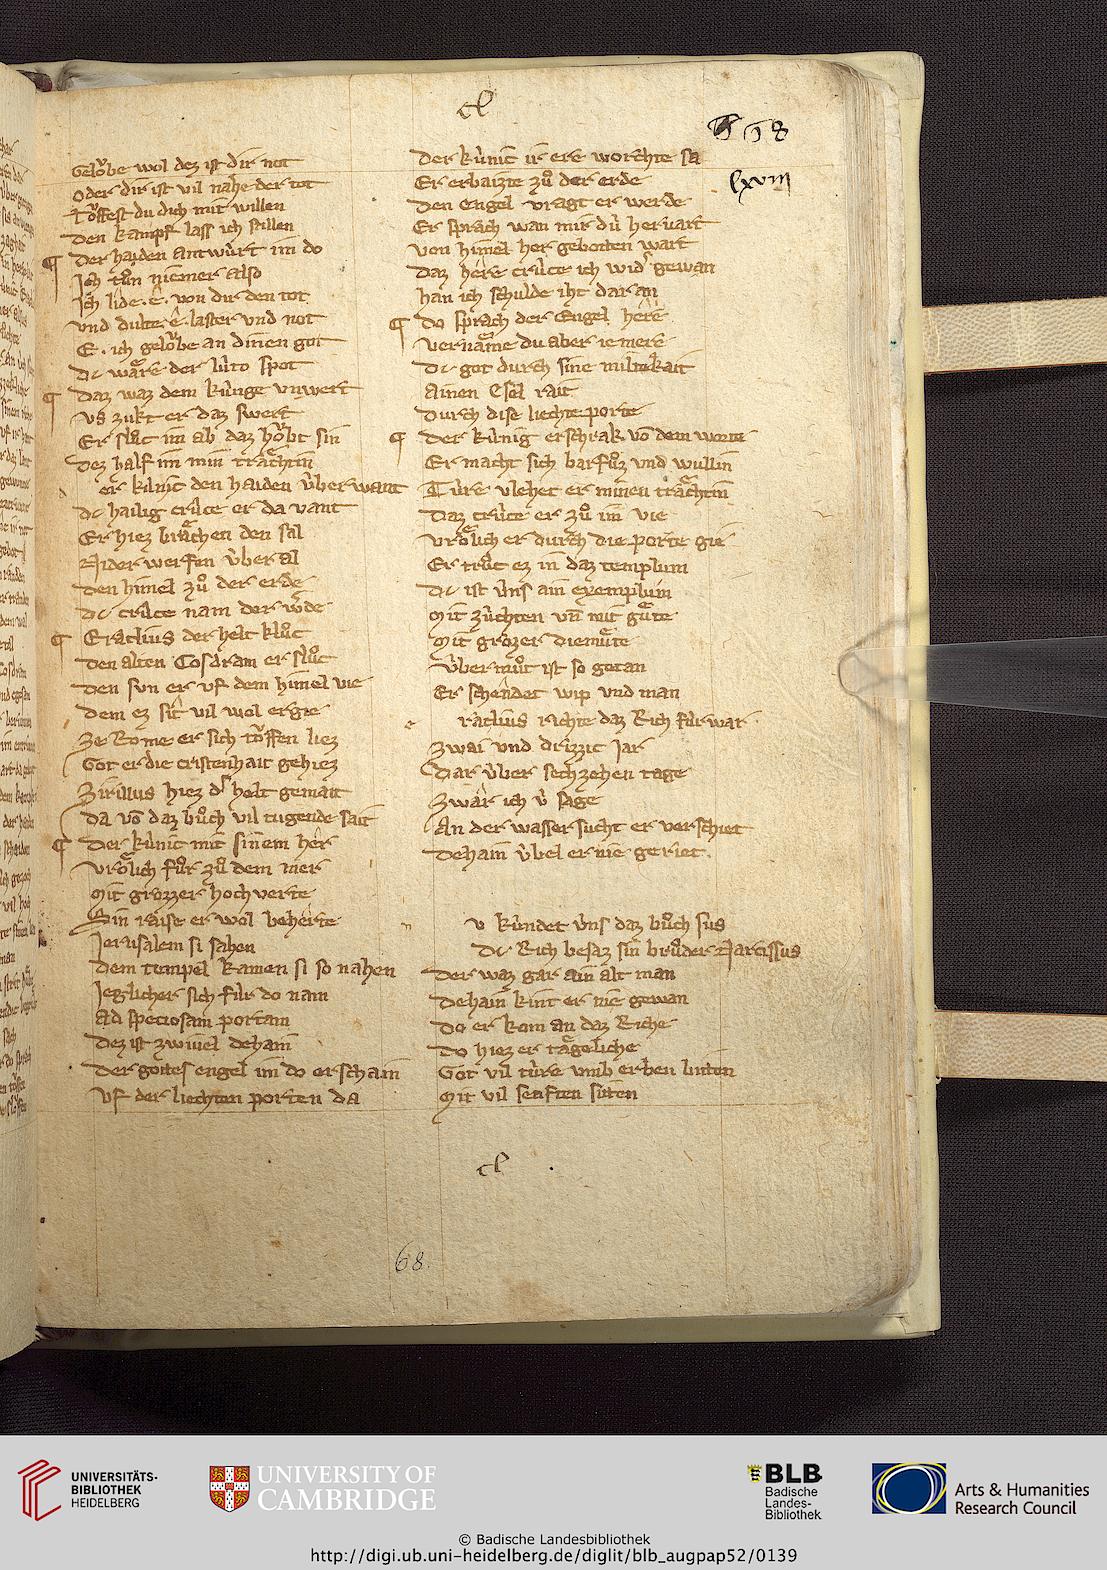 cl
68
lxviii
Gelobe wol dez ist dir not
Oder dir ist vil nahe der tot
Toͮffest du dich mit willen
Den kampf lass ich stillen
¶ Der haiden antwúrt im do
Jch tuͦn niemer also
Jch lide . e . von dir den tot
Vnd dulte . e . laster vnd not
E . ich geloͮbe an dinen got
Dc waͤre der lúto spot
¶ Daz waz dem kúnge vnwert
Vs zukt er daz swert
Er sluͦc im ab daz hoͮbt sin
Dez half im min traͤchtin
er kúnic den haiden úber want
Dc hailig crúce er da vant
Er hiez braͤchen den sal
Nider werfen úber al
Den himel zuͦ der erde
Dc crúce nam der w'de
¶ Eraclius der helt kluͦc
Den alten Cosdram er sluͦc
Den sun er vf dem himel vie
Dem ez sit vil wol ergie
Ze Rome er sich toͮffen liez
Got er die cristenhait gehiez
Zirillus hiez d' helt gemait
Da vō daz buͦch vil tugende sait
¶ Der kúnic mit sinem her
Vroͤlich fuͦr zuͦ dem mer
Mit grozzer hochverte
Sin raise er wol beherte
Jerusalem si sahen
Dem tempel kamen si so nahen
Jeglicher sich fúr do nam
Ad speciosam portam
Dez ist zwiuel dehain
Der gottes engel im do erschain
Vf der liechten porten da
Der kúnic ir ere worchte sa
Er erbaizte zuͦ der erde
Den engel vragt er werde
Er sprach wan mir dú heruart
Von himel her gebotten wart
Daz here crúce ich wid' gewan
Han ich schulde iht dar an
¶ Do sprach der Engel here
Vernaͤme du aber iemere
Dc got durch sine miltekait
Ainen Esel rait
Durch dise liechte porte
¶ Der kúnig erschrak vō dem worte
Er macht sich barfuͦz vnd wullin
Túre vlehet er minen traͤchtin
Daz crúce er zuͦ im vie
Vroͤlich er durch die porte gie
Er truͦc ez in daz templum
Dc ist úns ain exemplum
Mit zúchten vn̄ mit guͤte
Mit grozer diemuͤte
Úber muͦt ist so getan
Er schendet wip vnd man
raclius richte daz Rich fúr war
Zwai vnd drizzic Jar
Dar úber sechzehen tage
Zwar ich ú sage
An der wassersucht er verschiet
Dehain úbel er nie geriet.
v kúndet úns daz buͦch sus
Dc Rich besaz sin bruͦder Narcissus
Der waz gar ain alt man
Dehain kint er nie gewan
Do er kom an daz Riche
Do hiez er taͤgeliche
Got vil túre vmb erben bitten
Mit vil senften sitten
cl
68.
UNIVERSITÄTS-
BIBLIOTHEK
HEIDELBERG
UNIVERSITY OF
CAMBRIDGE
BLB
Badische
Landes-
Bibliothek
Arts & Humanities
Research Council
© Badische Landesbibliothek
http://digi.ub.uni-heidelberg.de/diglit/blb_augpap52/0139